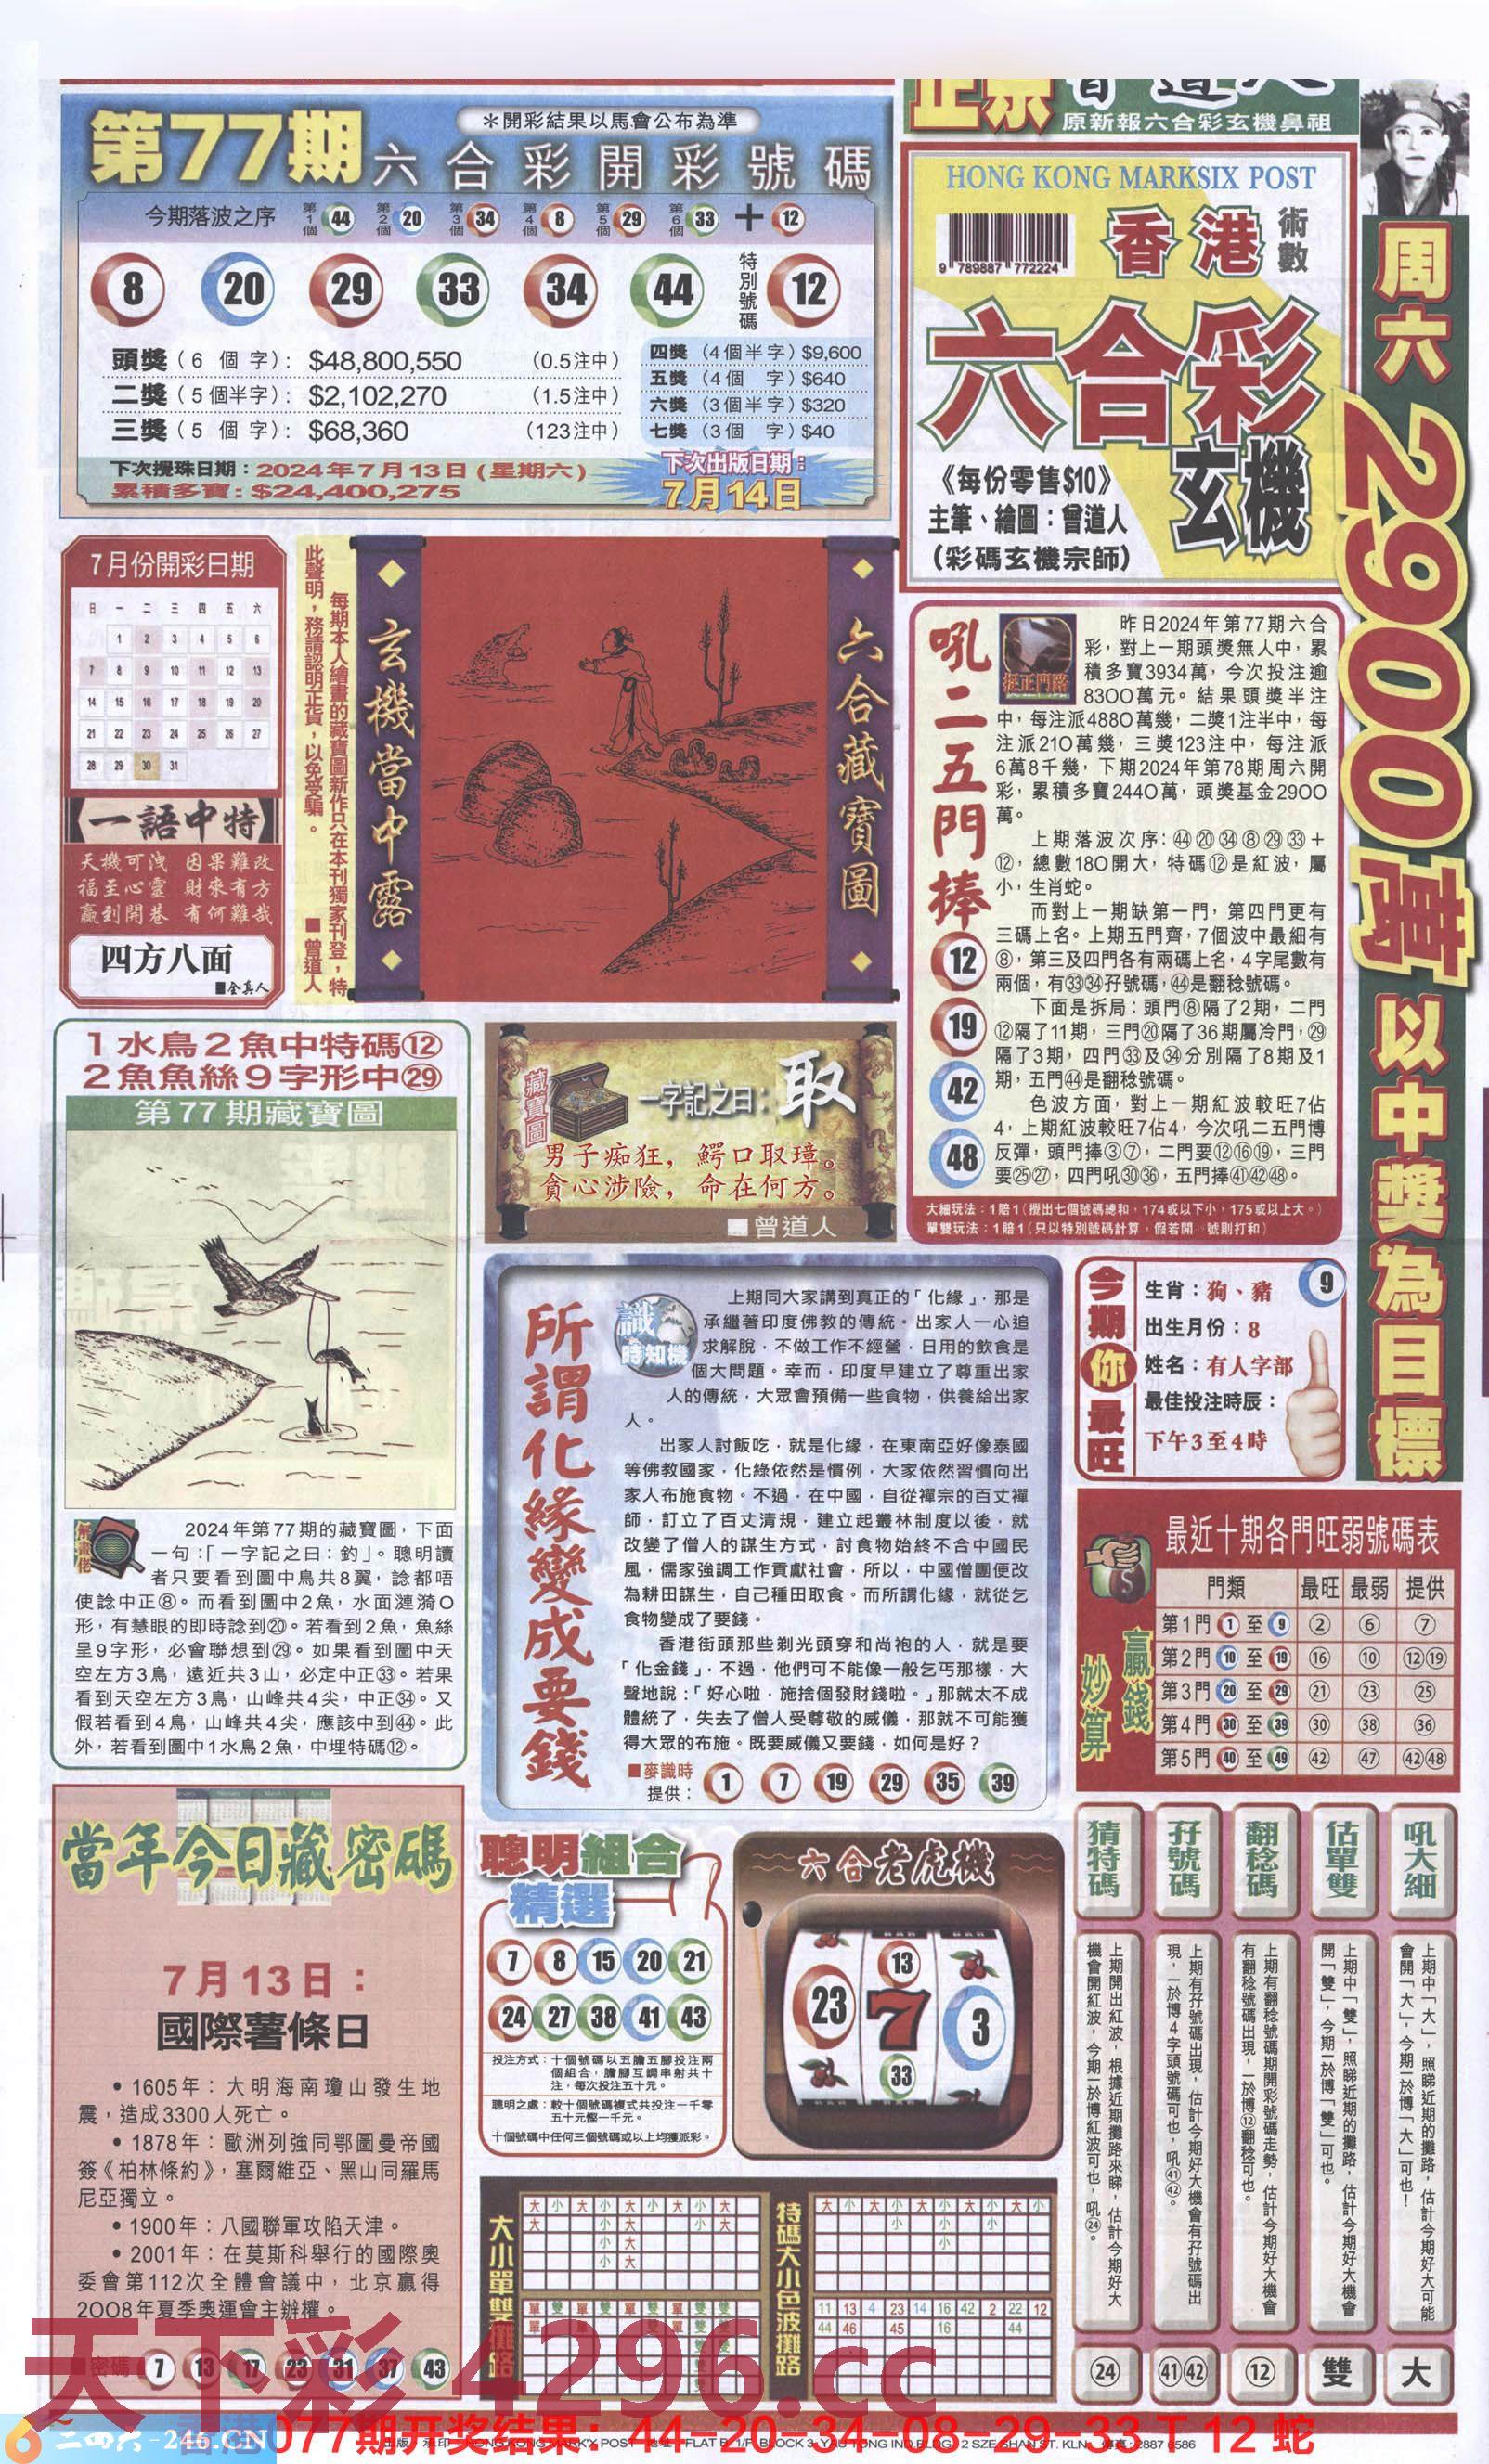 第77期
＊開彩結果以馬會公布為準
六合彩開彩號碼
今期落波之序 第1個 44 第2個 20 第3個 34 第4個 8 第5個 29 第6個 33 + 12
8 20 29 33 34 44 特別號碼 12
頭獎（6 個 字）: $48,800,550 （0.5注中）
二獎（5個半字）: $2,102,270 （1.5注中）
三獎（5 個 字）: $68,360 （123注中）
四獎（4個半字）$9,600
五獎（4個 字）$640
六獎（3個半字）$320
七獎（3個 字）$40
下次攪珠日期：2024年7月13日（星期六）
累積多寶：$24,400,275
下次出版日期：
7月14日
原新報六合彩玄機鼻祖
HONG KONG MARKSIX POST
9 789887 772224
香港
術數
六合彩
玄機
《每份零售$10》
主筆、繪圖：曾道人
（彩碼玄機宗師）
周六2900萬以中獎為目標
7月份開彩日期
日 一 二 三 四 五 六
1 2 3 4 5 6
7 8 9 10 11 12 13
14 15 16 17 18 19 20
21 22 23 24 25 26 27
28 29 30 31
一語中特
天機可洩 因果難改
福至心靈 財來有方
贏到開巷 有何難哉
四方八面
■全真人
每期本人繪畫的藏寶圖新作只在本刊獨家刊登，特
此聲明，務請認明正貨，以免受騙。 ■曾道人
玄機當中露
六合藏寶圖
吼二五門捧
12
19
42
48
捉正門路
昨日2024年第77期六合
彩，對上一期頭獎無人中，累
積多寶3934萬，今次投注逾
8300萬元。結果頭獎半注
中，每注派4880萬幾，二獎1注半中，每
注派210萬幾，三獎123注中，每注派
6萬8千幾，下期2024年第78期周六開
彩，累積多寶2440萬，頭獎基金2900
萬。
上期落波次序：㊹⑳㉞⑧㉙㉝＋
⑫，總數180開大，特碼⑫是紅波，屬
小，生肖蛇。
而對上一期缺第一門，第四門更有
三碼上名。上期五門齊，7個波中最細有
⑧，第三及四門各有兩碼上名，4字尾數有
兩個，有㉝㉞孖號碼，㊹是翻稔號碼。
下面是拆局：頭門⑧隔了2期，二門
⑫隔了11期，三門⑳隔了36期屬冷門，㉙
隔了3期，四門㉝及㉞分別隔了8期及1
期，五門㊹是翻稔號碼。
色波方面，對上一期紅波較旺7佔
4，上期紅波較旺7佔4，今次吼二五門博
反彈，頭門捧③⑦，二門要⑫⑯⑲，三門
要㉕㉗，四門吼㉚㊱，五門捧㊶㊷㊽。
大細玩法：1賠1（攪出七個號碼總和，174或以下小，175或以上大。）
單雙玩法：1賠1（只以特別號碼計算，假若開 號則打和）
1水鳥2魚中特碼⑫
2魚魚絲9字形中㉙
第77期藏寶圖
解畫佬
2024年第77期的藏寶圖，下面
一句：「一字記之曰：釣」。聰明讀
者只要看到圖中鳥共8翼，諗都唔
使諗中正⑧。而看到圖中2魚，水面漣漪O
形，有慧眼的即時諗到⑳。若看到2魚，魚絲
呈9字形，必會聯想到㉙。如果看到圖中天
空左方3鳥，遠近共3山，必定中正㉝。若果
看到天空左方3鳥，山峰共4尖，中正㉞。又
假若看到4鳥，山峰共4尖，應該中到㊹。此
外，若看到圖中1水鳥2魚，中埋特碼⑫。
藏寶圖
一字記之曰：取
男子痴狂，鱷口取璋。
貪心涉險，命在何方。
■曾道人
所謂化緣變成要錢
識時知機
上期同大家講到真正的「化緣」，那是
承繼著印度佛教的傳統。出家人一心追
求解脫，不做工作不經營，日用的飲食是
個大問題。幸而，印度早建立了尊重出家
人的傳統，大眾會預備一些食物，供養給出家
人。
出家人討飯吃，就是化緣，在東南亞好像泰國
等佛教國家，化緣依然是慣例，大家依然習慣向出
家人布施食物。不過，在中國，自從禪宗的百丈禪
師，訂立了百丈清規，建立起叢林制度以後，就
改變了僧人的謀生方式，討食物始終不合中國民
風，儒家強調工作貢獻社會，所以，中國僧團便改
為耕田謀生，自己種田取食。而所謂化緣，就從乞
食物變成了要錢。
香港街頭那些剃光頭穿和尚袍的人，就是要
「化金錢」，不過，他們可不能像一般乞丐那樣，大
聲地說：「好心啦，施捨個發財錢啦。」那就太不成
體統了，失去了僧人受尊敬的威儀，那就不可能獲
得大眾的布施。既要威儀又要錢，如何是好？
■麥識時
提供： 1 7 19 29 35 39
今期你最旺
生肖：狗、豬 9
出生月份：8
姓名：有人字部
最佳投注時辰：
下午3至4時
最近十期各門旺弱號碼表
贏錢妙算
門類 最旺 最弱 提供
第1門①至⑨ ② ⑥ ⑦
第2門⑩至⑲ ⑯ ⑩ ⑫⑲
第3門⑳至㉙ ㉑ ㉓ ㉕
第4門㉚至㊴ ㉚ ㊳ ㊱
第5門㊵至㊾ ㊷ ㊼ ㊷㊽
當年今日藏密碼
7月13日：
國際薯條日
• 1605年：大明海南瓊山發生地
震，造成3300人死亡。
• 1878年：歐洲列強同鄂圖曼帝國
簽《柏林條約》，塞爾維亞、黑山同羅馬
尼亞獨立。
• 1900年：八國聯軍攻陷天津。
• 2001年：在莫斯科舉行的國際奧
委會第112次全體會議中，北京贏得
2008年夏季奧運會主辦權。
密碼 7 13 17 23 31 37 43
聰明組合
精選
7 8 15 20 21
24 27 38 41 43
投注方式：十個號碼以五膽五腳投注兩
個組合，膽腳互調串射共十
注，每次投注五十元。
聰明之處：較十個號碼複式共投注一千零
五十元慳一千元。
十個號碼中任何三個號碼或以上均獲派彩。
六合老虎機
13
23 7 3
33
大小單雙攤路
大 小 大 小 大 小 大 小 大
大 小 大 小 大
小 大
小 大
單 雙 單 雙 單 雙 單 雙 雙
特碼大小色波攤路
大 小 大 小 大 小 大 小 大 小
小 小 小
小
11 13 4 23 14 16 42 2 22 12
44 46 45 16 44
吼大細
上期中「大」，照睇近期的攤路，估計今期好大可能
會開「大」，今期一於博「大」可也！
大
估單雙
上期中「雙」，照睇近期的攤路，估計今期好大機會
開「雙」，今期一於博「雙」可也。
雙
翻稔碼
上期有翻稔號碼期開彩號碼走勢，估計今期好大機會
有翻稔號碼出現，一於博⑫翻稔可也。
⑫
孖號碼
上期有孖號碼出現，估計今期好大機會有孖號碼出
現，一於博4字頭號碼可也，吼㊶㊷。
㊶㊷
猜特碼
上期開出紅波，根據近期攤路來睇，估計今期好大
機會開紅波，今期一於博紅波可也，吼㉔。
㉔
天下彩 4296.cc
二四六-246.CN
077期开奖结果：44-20-34-08-29-33 T 12 蛇